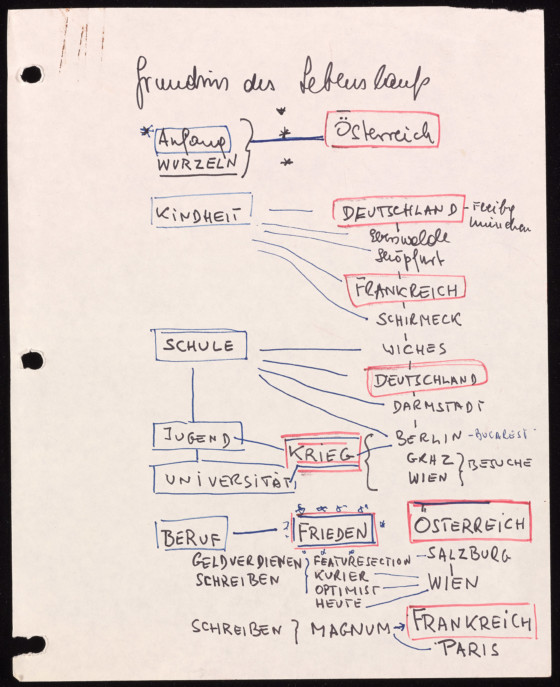 Grundriss des Lebenslaufs
* Anfang * Österreich
WURZELN *
KINDHEIT DEUTSCHLAND - Freibg
München
Eberswalde
Schöpfurt
FRANKREICH
SCHIRMECK
SCHULE WICHES
DEUTSCHLAND
DARMSTADT
JUGEND KRIEG BERLIN - BUCAREST
GRAZ } BESUCHE
UNIVERSITÄT WIEN
BERUF FRIEDEN ÖSTERREICH
GELDVERDIENEN } FEATURESECTION - SALZBURG
SCHREIBEN KURIER WIEN
OPTIMIST
HEUTE
SCHREIBEN } MAGNUM → FRANKREICH
PARIS